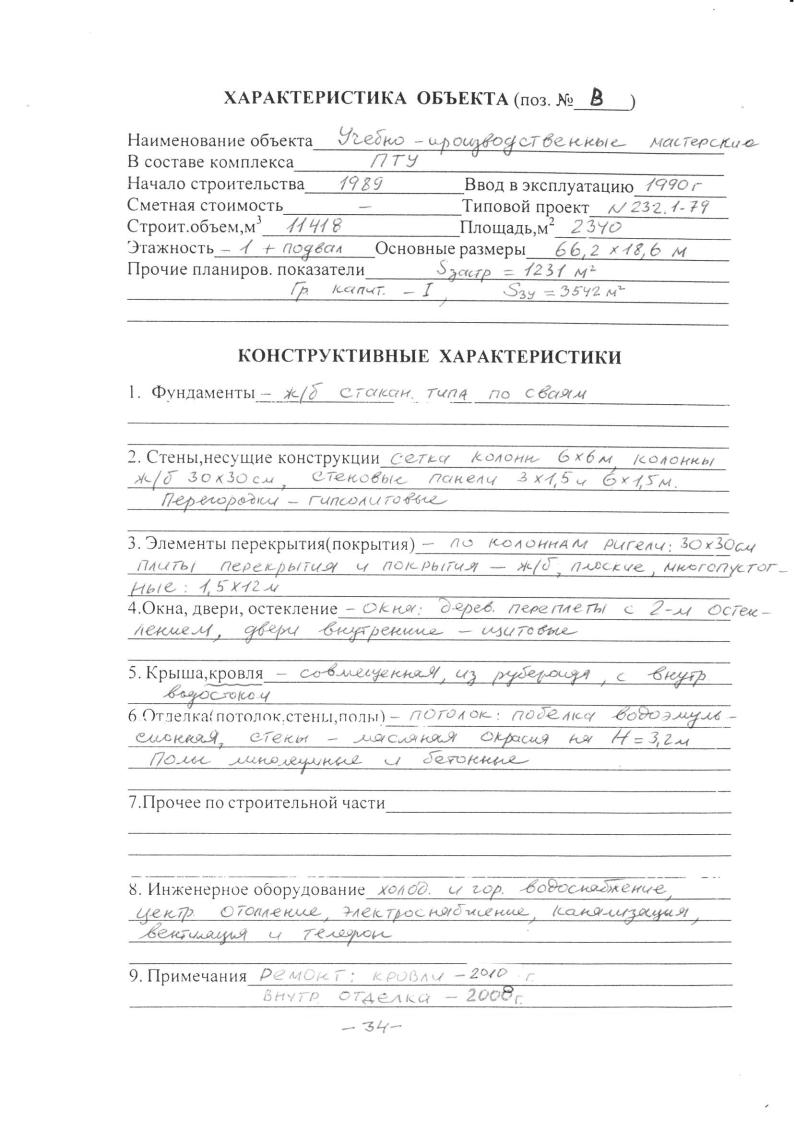 ХАРАКТЕРИСТИКА ОБЪЕКТА (поз. № В )
Наименование объекта Учебно - производственные мастерские
В составе комплекса ПТУ
Начало строительства 1989 Ввод в эксплуатацию 1990 г
Сметная стоимость — Типовой проект N 232.1-79
Строит.объем,м³ 11418 Площадь,м² 2340
Этажность - 1 + подвал Основные размеры 66,2 х 18,6 м
Прочие планиров. показатели Sзастр = 1231 м²
Гр капит. - I, Sзу = 3542 м²
КОНСТРУКТИВНЫЕ ХАРАКТЕРИСТИКИ
1. Фундаменты - ж/б стакан. типа по сваям
2. Стены,несущие конструкции сетка колонн 6х6м, колонны
ж/б 30х30 см, стеновые панели 3 х 1,5 и 6 х 1,5 м.
Перегородки - гипсолитовые
3. Элементы перекрытия(покрытия) - по колоннам ригели: 30х30см
плиты перекрытия и покрытия — ж/б, плоские, многопустот-
ные: 1,5х12м
4.Окна, двери, остекление - окна: дерев. переплеты с 2-м остек-
лением, двери внутренние - щитовые
5. Крыша,кровля - совмещенная, из рубероида, с внутр
водостоком
6.Отделка(потолок,стены,полы) - потолок: побелка водоэмуль-
сионная, стены - масляная окраска на Н = 3,2м
Полы линолеумные и бетонные
7.Прочее по строительной части
8. Инженерное оборудование холод. и гор. водоснабжение,
центр. отопление, электроснабжение, канализация,
вентиляция и телефон
9. Примечания Ремонт: кровли - 2010 г.
внутр отделка - 2008г.
- 34 -